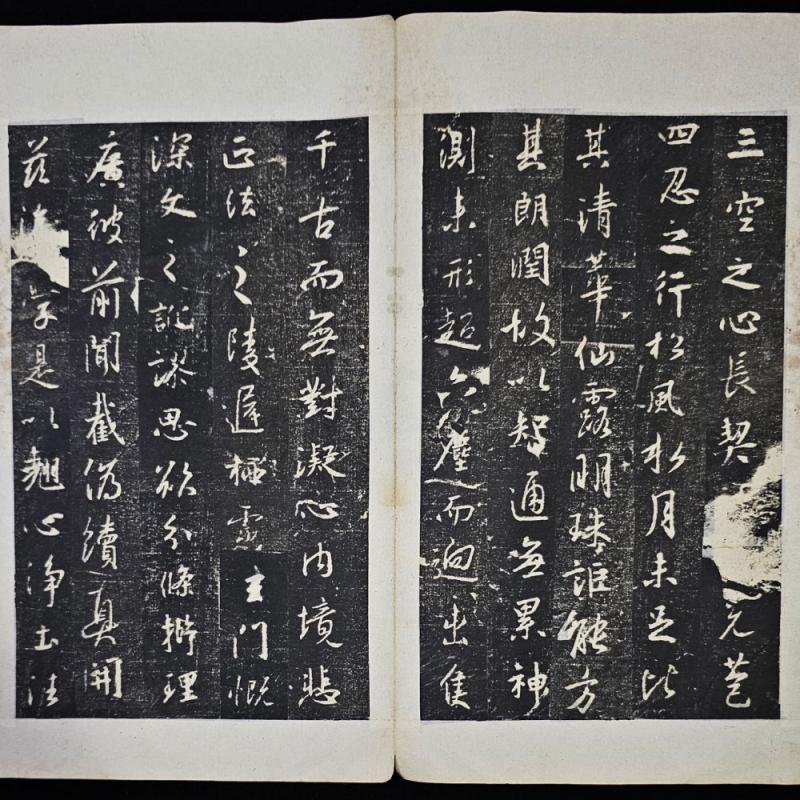 三空之心長契先苞
四忍之行松風水月未足比
其清華仙露明珠詎能方
其朗潤故以智通無累神
測未形超六塵而迥出隻
千古而無對凝心內境悲
正法之陵遲栖慮玄門慨
深文之訛謬思欲分條析理
廣彼前聞截偽續真開
茲學是以翹心淨土法